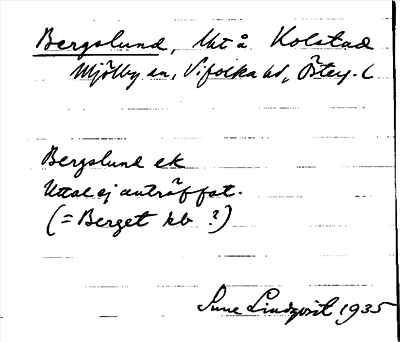 Bergslund, Uht å Kolstad
Mjölby sn, Vifolka hd, Östeg. l
Bergslund ek
Uttal ej anträffat.
(= Berget kb ?)
Sune Lindqvist 1935